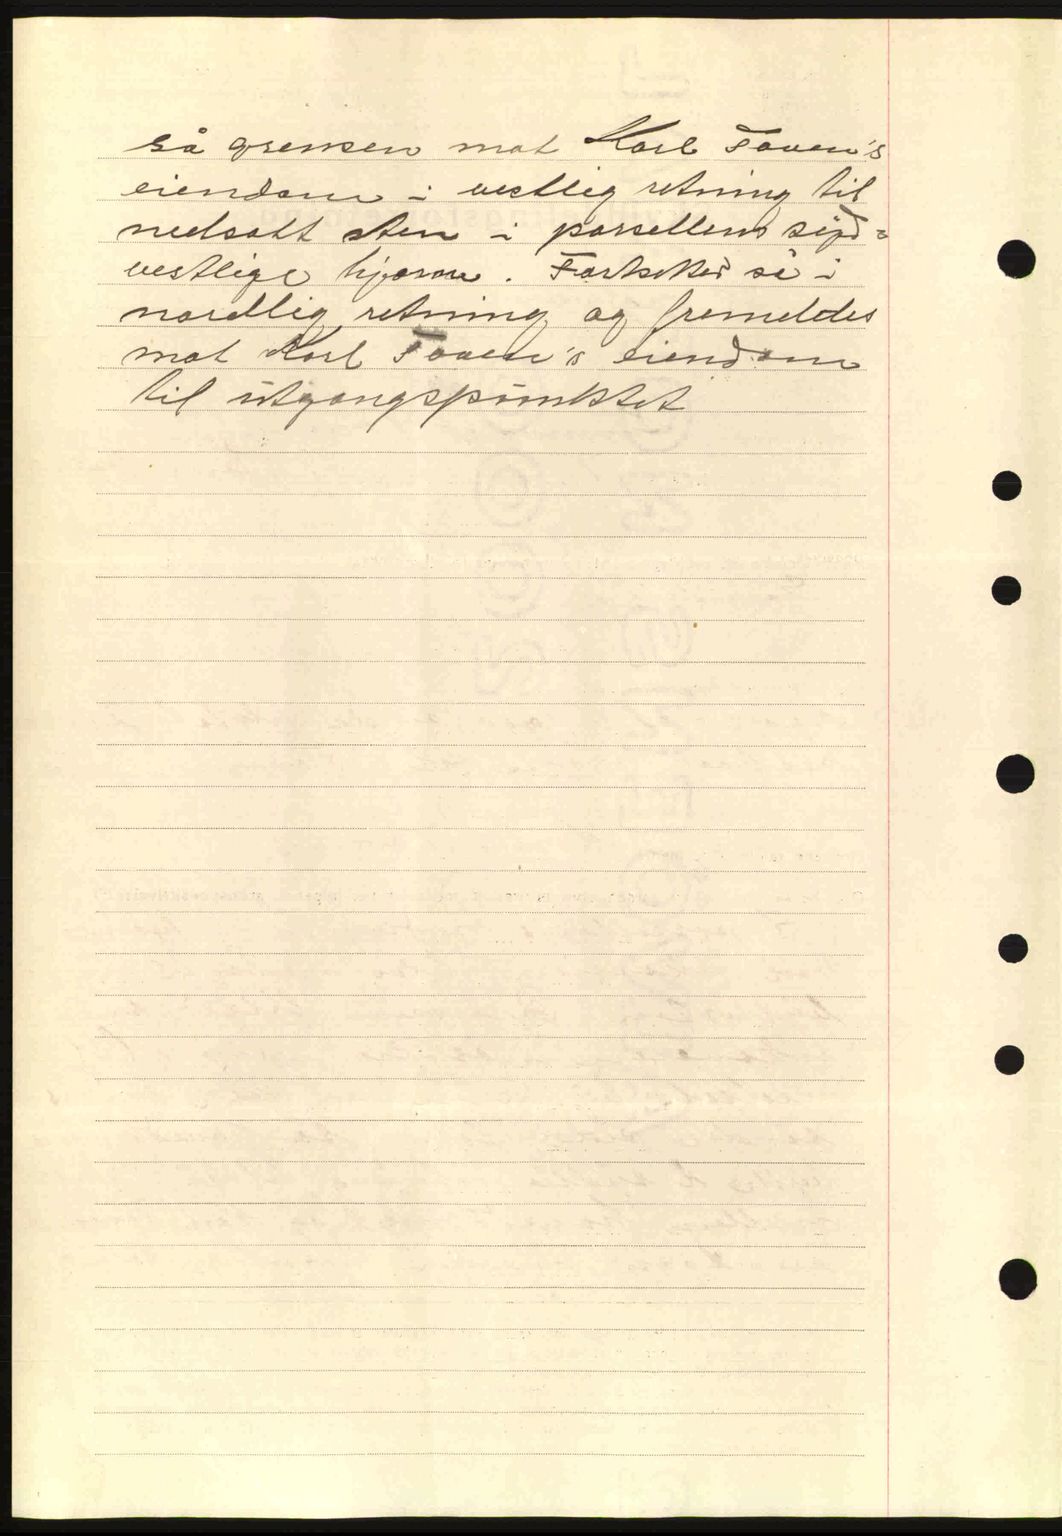 så grensen mot Karl Foven's
eiendom i vestlig retning til
nedsatt sten i parsellens syd=
vestlige hjørne. Fortsetter så i
nordlig retning og fremdeles
mot Karl Foven's eiendom
til utgangspunktet